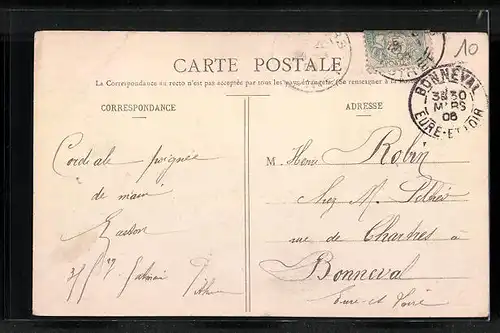 10
CARTE POSTALE
La Correspondance au recto n'est pas acceptée par tous les pays étrangers. (Se renseigner à la
CORRESPONDANCE
ADRESSE
BONNEVAL
3E 30
MARS
06
EURE-ET-LOIR
Cordiale poignée
de main
Gaston
M. Henri Robin
chez M.
rue de Chartres à
Bonneval
Eure-et-Loir